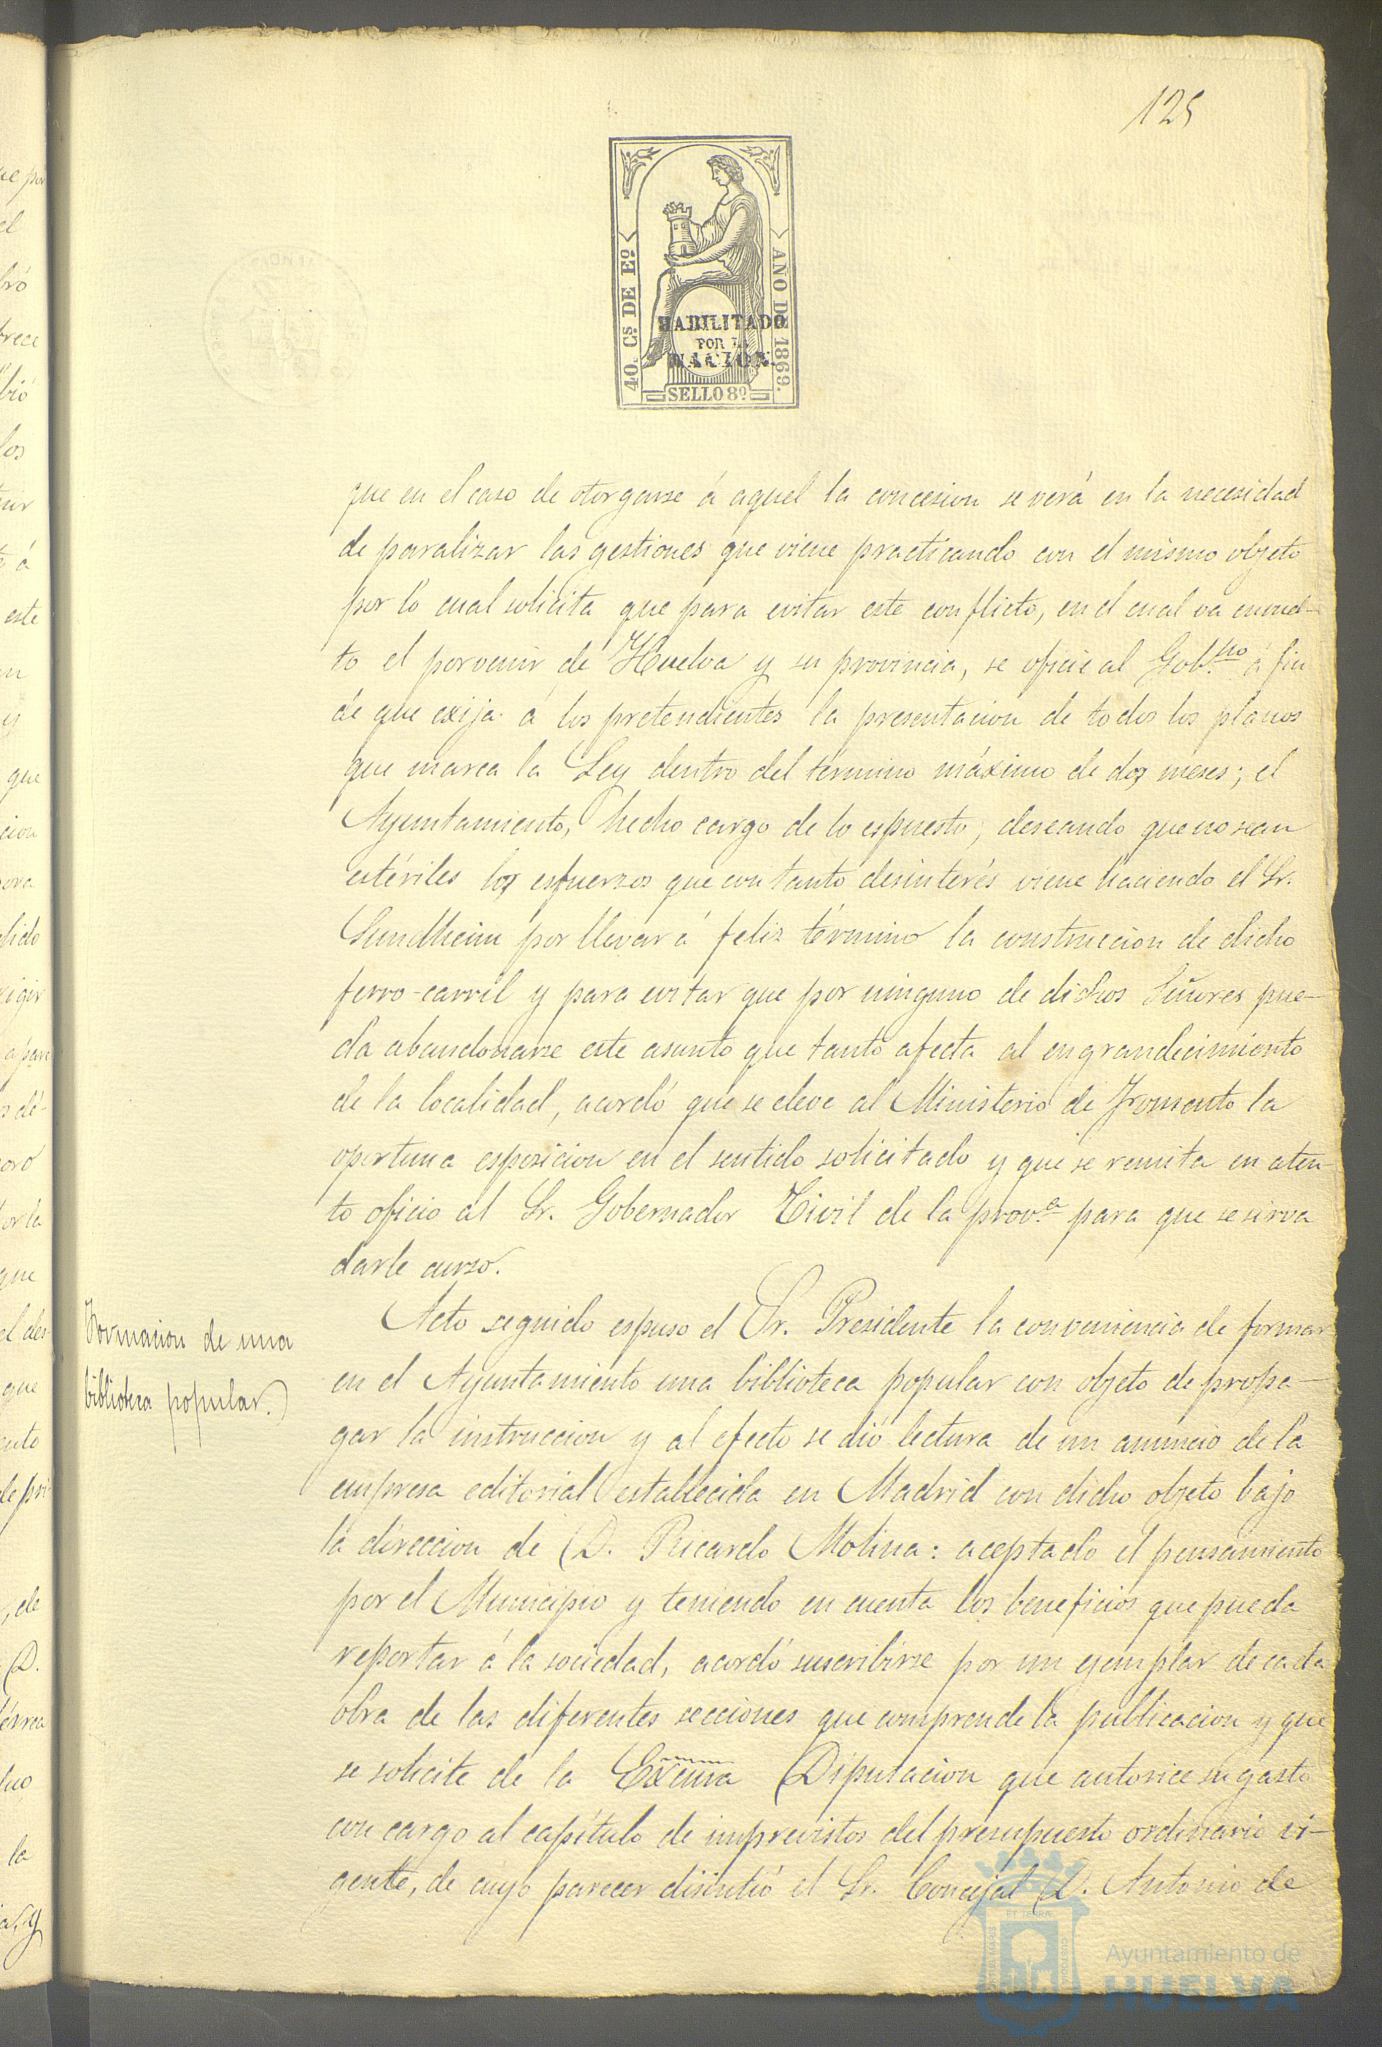 125
40. Cs DE Eo.
AÑO DE 1869.
HABILITADO
POR LA
NACION.
SELLO 8º
que en el caso de otorgarse á aquel la concesion se verá en la necesidad
de paralizar las gestiones que viene practicando con el mismo objeto
por lo cual solicita que para evitar este conflicto, en el cual va envuel-
to el porvenir de Huelva y su provincia, se oficie al Gob.no á fin
de que exija á los pretendientes la presentacion de todos los planos
que marca la Ley dentro del término máximo de dos meses; el
Ayuntamiento, hecho cargo de lo espuesto, deseando que no sean
estériles los esfuerzos que con tanto desinterés viene haciendo el Sr.
Sundheim por llevar á feliz término la construccion de dicho
ferro-carril y para evitar que por ninguno de dichos Señores pue-
da abandonarse este asunto que tanto afecta al engrandecimiento
de la localidad, acordó que se eleve al Ministerio de Fomento la
oportuna esposicion en el sentido solicitado y que se remita en aten-
to oficio al Sr. Gobernador Civil de la prov.a para que se sirva
darle curso.
Formacion de una
biblioteca popular.)
Acto seguido espuso el Sr. Presidente la conveniencia de formar
en el Ayuntamiento una biblioteca popular con objeto de propa-
gar la instruccion y al efecto se dió lectura de un anuncio de la
empresa editorial establecida en Madrid con dicho objeto bajo
la direccion de D. Ricardo Molina: aceptado el pensamiento
por el Municipio y teniendo en cuenta los beneficios que pueda
reportar á la sociedad, acordó suscribirse por un ejemplar de cada
obra de las diferentes secciones que comprende la publicacion y que
se solicite de la Excma Diputacion que autorice su gasto
con cargo al capítulo de imprevistos del presupuesto ordinario vi-
gente, de cuyo parecer disintió el Sr. Concejal D. Antonio de
Ayuntamiento de
HUELVA